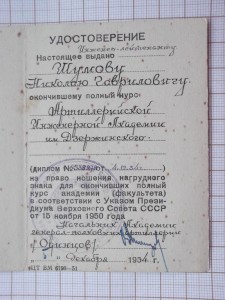 УДОСТОВЕРЕНИЕ
Инженер-лейтенанту
Настоящее выдано
Шумову
Николаю Гавриловичу
окончившему полный курс
Артиллерийской
Инженерной Академии
им. Дзержинского
(диплом №
на право ношения нагрудного
знака для окончивших полный
курс академии (факультета)
в соответствии с Указом Прези-
диума Верховного Совета СССР
от 15 ноября 1950 года
Начальник Академии
генерал-полковник артиллерии
(Одинцов)
декабря 1954 г.